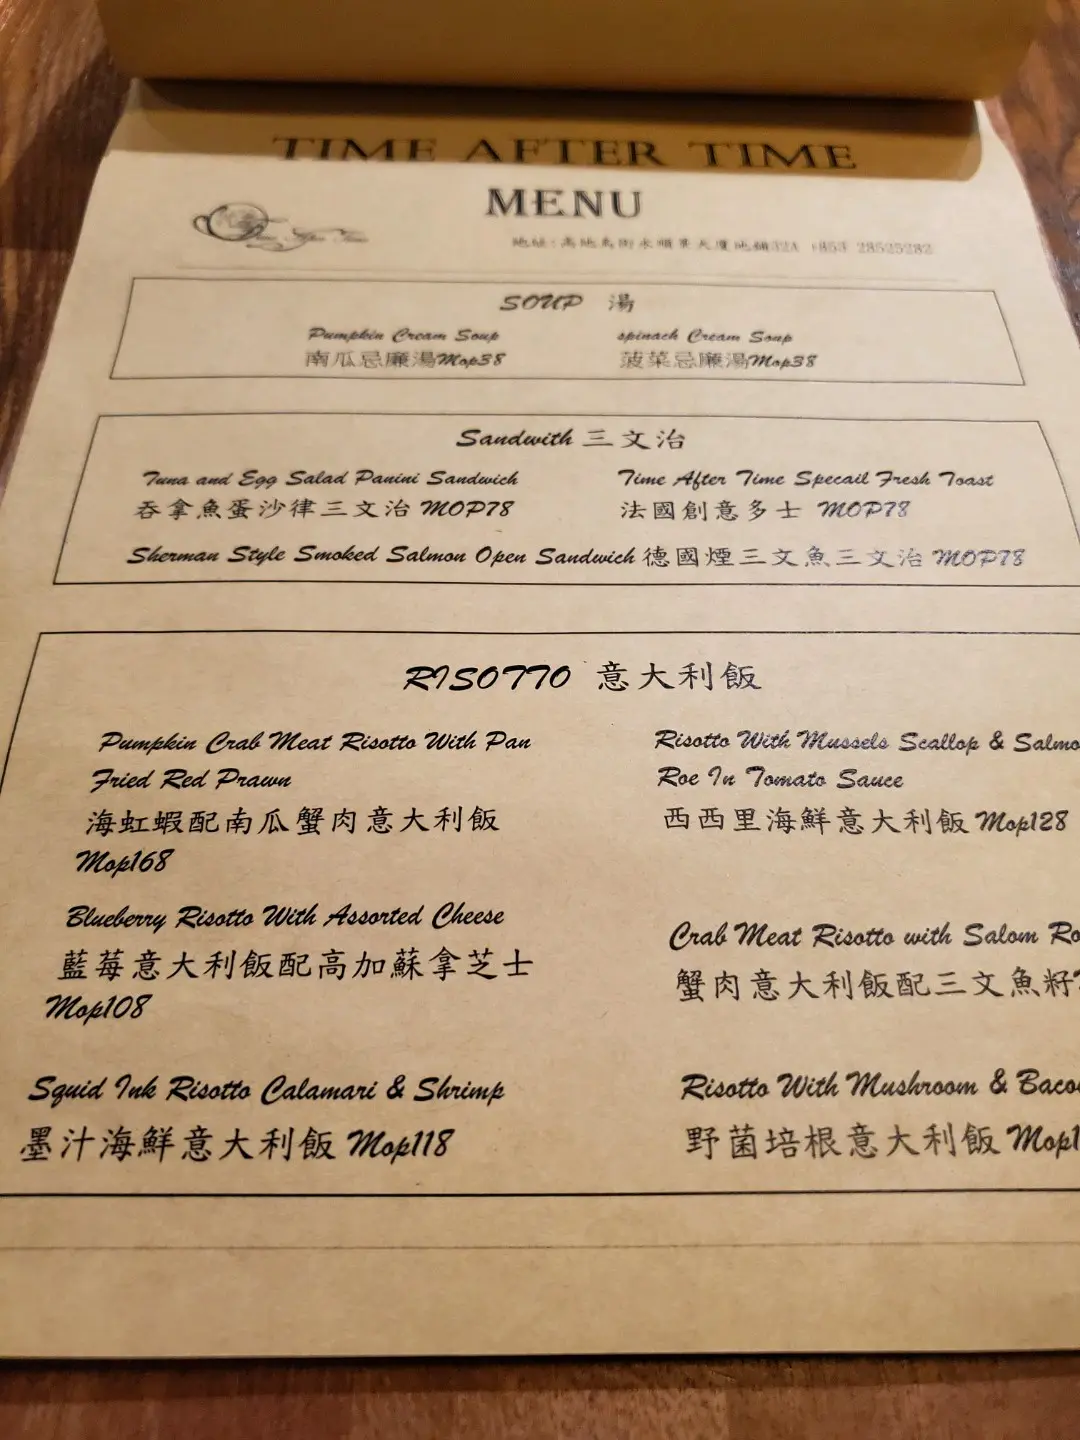 TIME AFTER TIME
MENU
Time After Time
地址:高地烏街永順景大廈地鋪32A +853 28525282
SOUP 湯
Pumpkin Cream Soup
南瓜忌廉湯Mop38
spinach Cream Soup
菠菜忌廉湯Mop38
Sandwith 三文治
Tuna and Egg Salad Panini Sandwich
吞拿魚蛋沙律三文治 MOP78
Time After Time Specail Fresh Toast
法國創意多士 MOP78
Sherman Style Smoked Salmon Open Sandwich 德國煙三文魚三文治 MOP78
RISOTTO 意大利飯
Pumpkin Crab Meat Risotto With Pan
Fried Red Prawn
海虹蝦配南瓜蟹肉意大利飯
Mop168
Risotto With Mussels Scallop & Salmo
Roe In Tomato Sauce
西西里海鮮意大利飯 Mop128
Blueberry Risotto With Assorted Cheese
藍莓意大利飯配高加蘇拿芝士
Mop108
Crab Meat Risotto with Salom Ro
蟹肉意大利飯配三文魚籽
Squid Ink Risotto Calamari & Shrimp
墨汁海鮮意大利飯 Mop118
Risotto With Mushroom & Baco
野菌培根意大利飯 Mop1